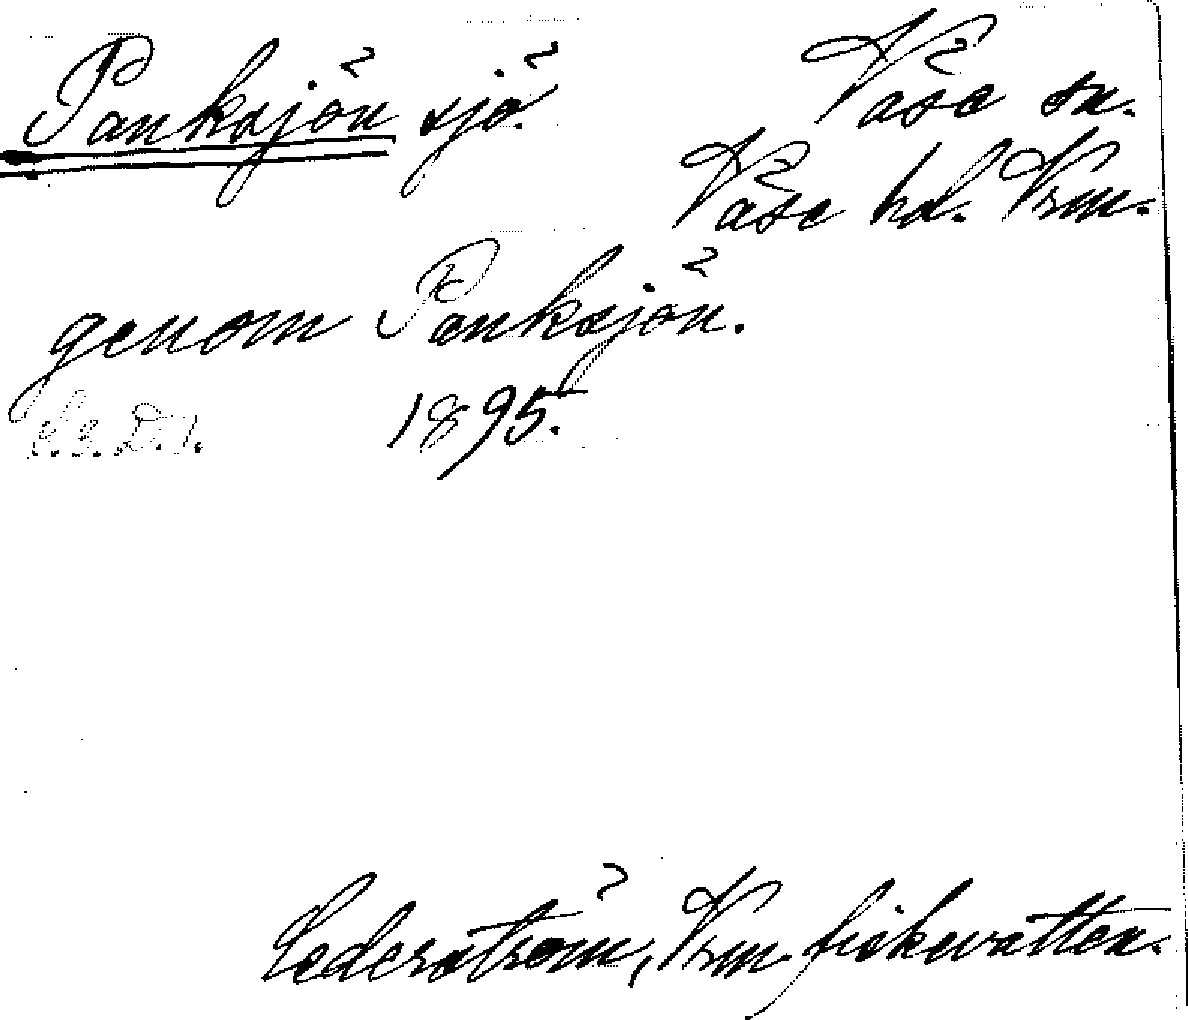 Panksjön sjö.
Väse sn.
Väse hd. Vrm.
genom Panksjön.
1895.
Cederström, Vrm. fiskevatten.